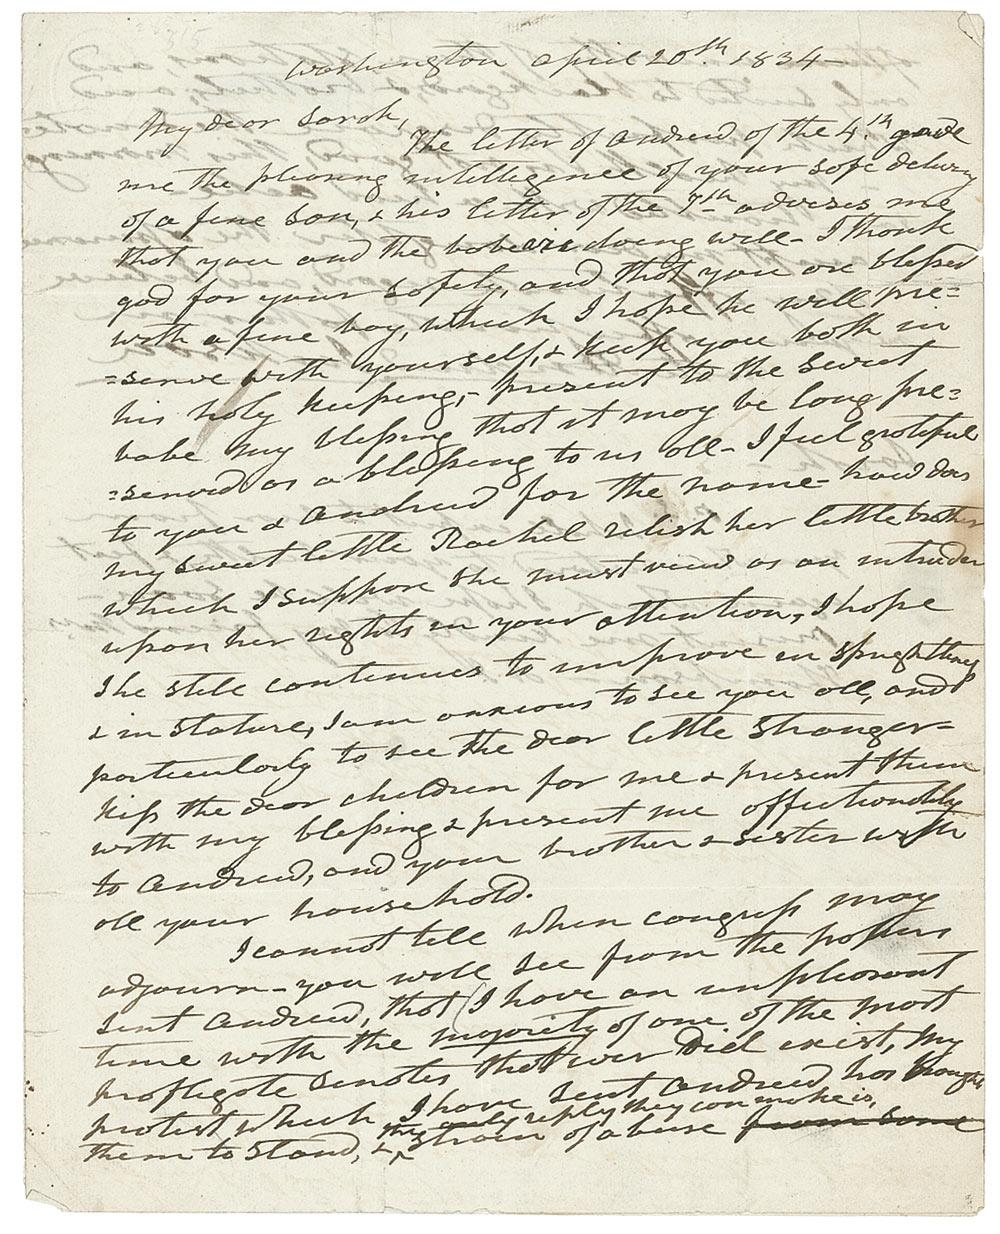 Washington April 20th. 1834-
My dear Sarah,
The letter of Andrew of the 4.th gave
me the pleasing intelligence of your safe delivery
of a fine son, & his letter of the 7th advises me
that you and the babe are doing well- I thank
god for your safety, and that you are blessed
with a fine boy, which I hope he will pre=
=serve with yourself, & keep you both in
his holy keeping,- present to the sweet
babe my blessing that it may be long pre=
=served as a blessing to us all- I feel grateful
to you & Andrew for the name- how does
my sweet little Rachel relish her little brother
which I suppose she must view as an intruder
upon her rights in your attention, I hope
she still continues to improve in sprightliness
& in stature, I am anxious to see you all, and
particularly to see the dear little stranger-
kiss the dear children for me & present them
with my blessing & present me affectionately
to Andrew, and your brother & sister with
all your household.
I cannot tell when congress may
adjourn- you will see from the papers
sent Andrew, that I have an unpleasant
time with the majority of one of the most
profligate senates that ever did exist, My
protest which I have sent Andrew has brought
the only reply they can make is,
them to stand, & strain of abuse from some